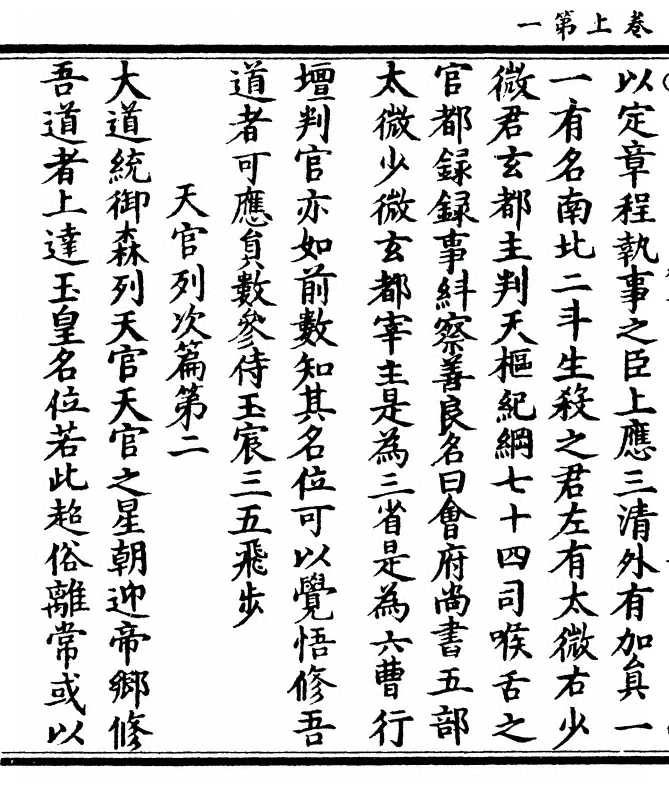 卷上第一
以定章程執事之臣上應三清外有加員一
一有名南北二斗生殺之君左有太微右少
微君玄都主判天樞紀綱七十四司喉舌之
官都録録事糾察善良名曰會府尚書五部
太微少微玄都宰主是為三省是為六曹行
壇判官亦如前數知其名位可以覺悟修吾
道者可應員數參侍玉宸三五飛步
天官列次篇第二
大道統御森列天官天官之星朝迎帝鄉修
吾道者上達玉皇名位若此超俗離常或以